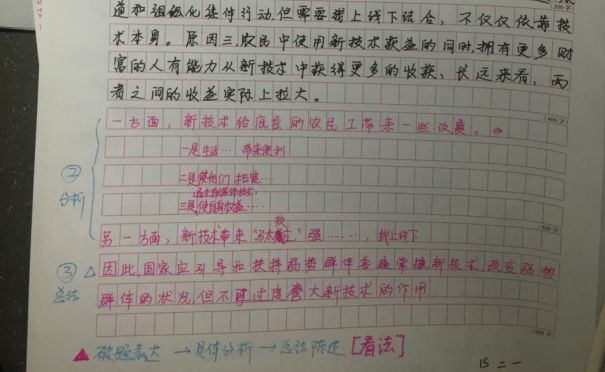 道和组织化集体行动,但需要线上线下结合,不仅仅依靠技
术本身。原因三,农民中使用新技术获益的同时,拥有更多财
富的人有能力从新技术中获得更多的收获,长远来看,两
者之间的收益实际上拉大。
一方面,新技术给底层的农民工带来一些改变。
一是生活…带来便利
二是使他们
三是使自身权益……
② 分析
另一方面,新技术带来"马太效应"强……,线上线下
③ 总结
因此,国家应引导和扶持弱势群体掌握新技术,改变弱势
群体的状况,但不可过度夸大新技术的作用
破题表达→具体分析→总结陈述[看法]
15 = 一